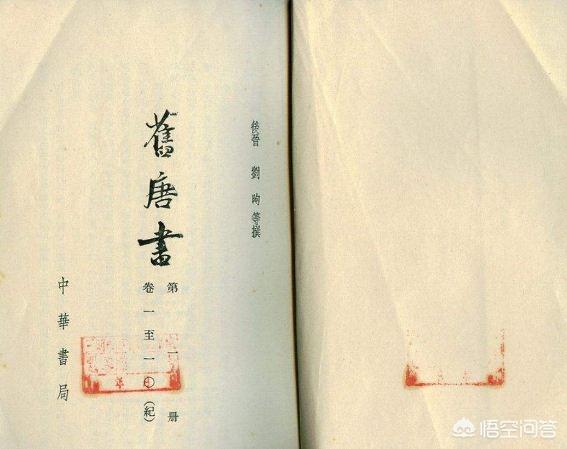 後晉 劉昫等撰
舊唐書
第一册
卷一至一〇(紀)
中華書局
悟空问答